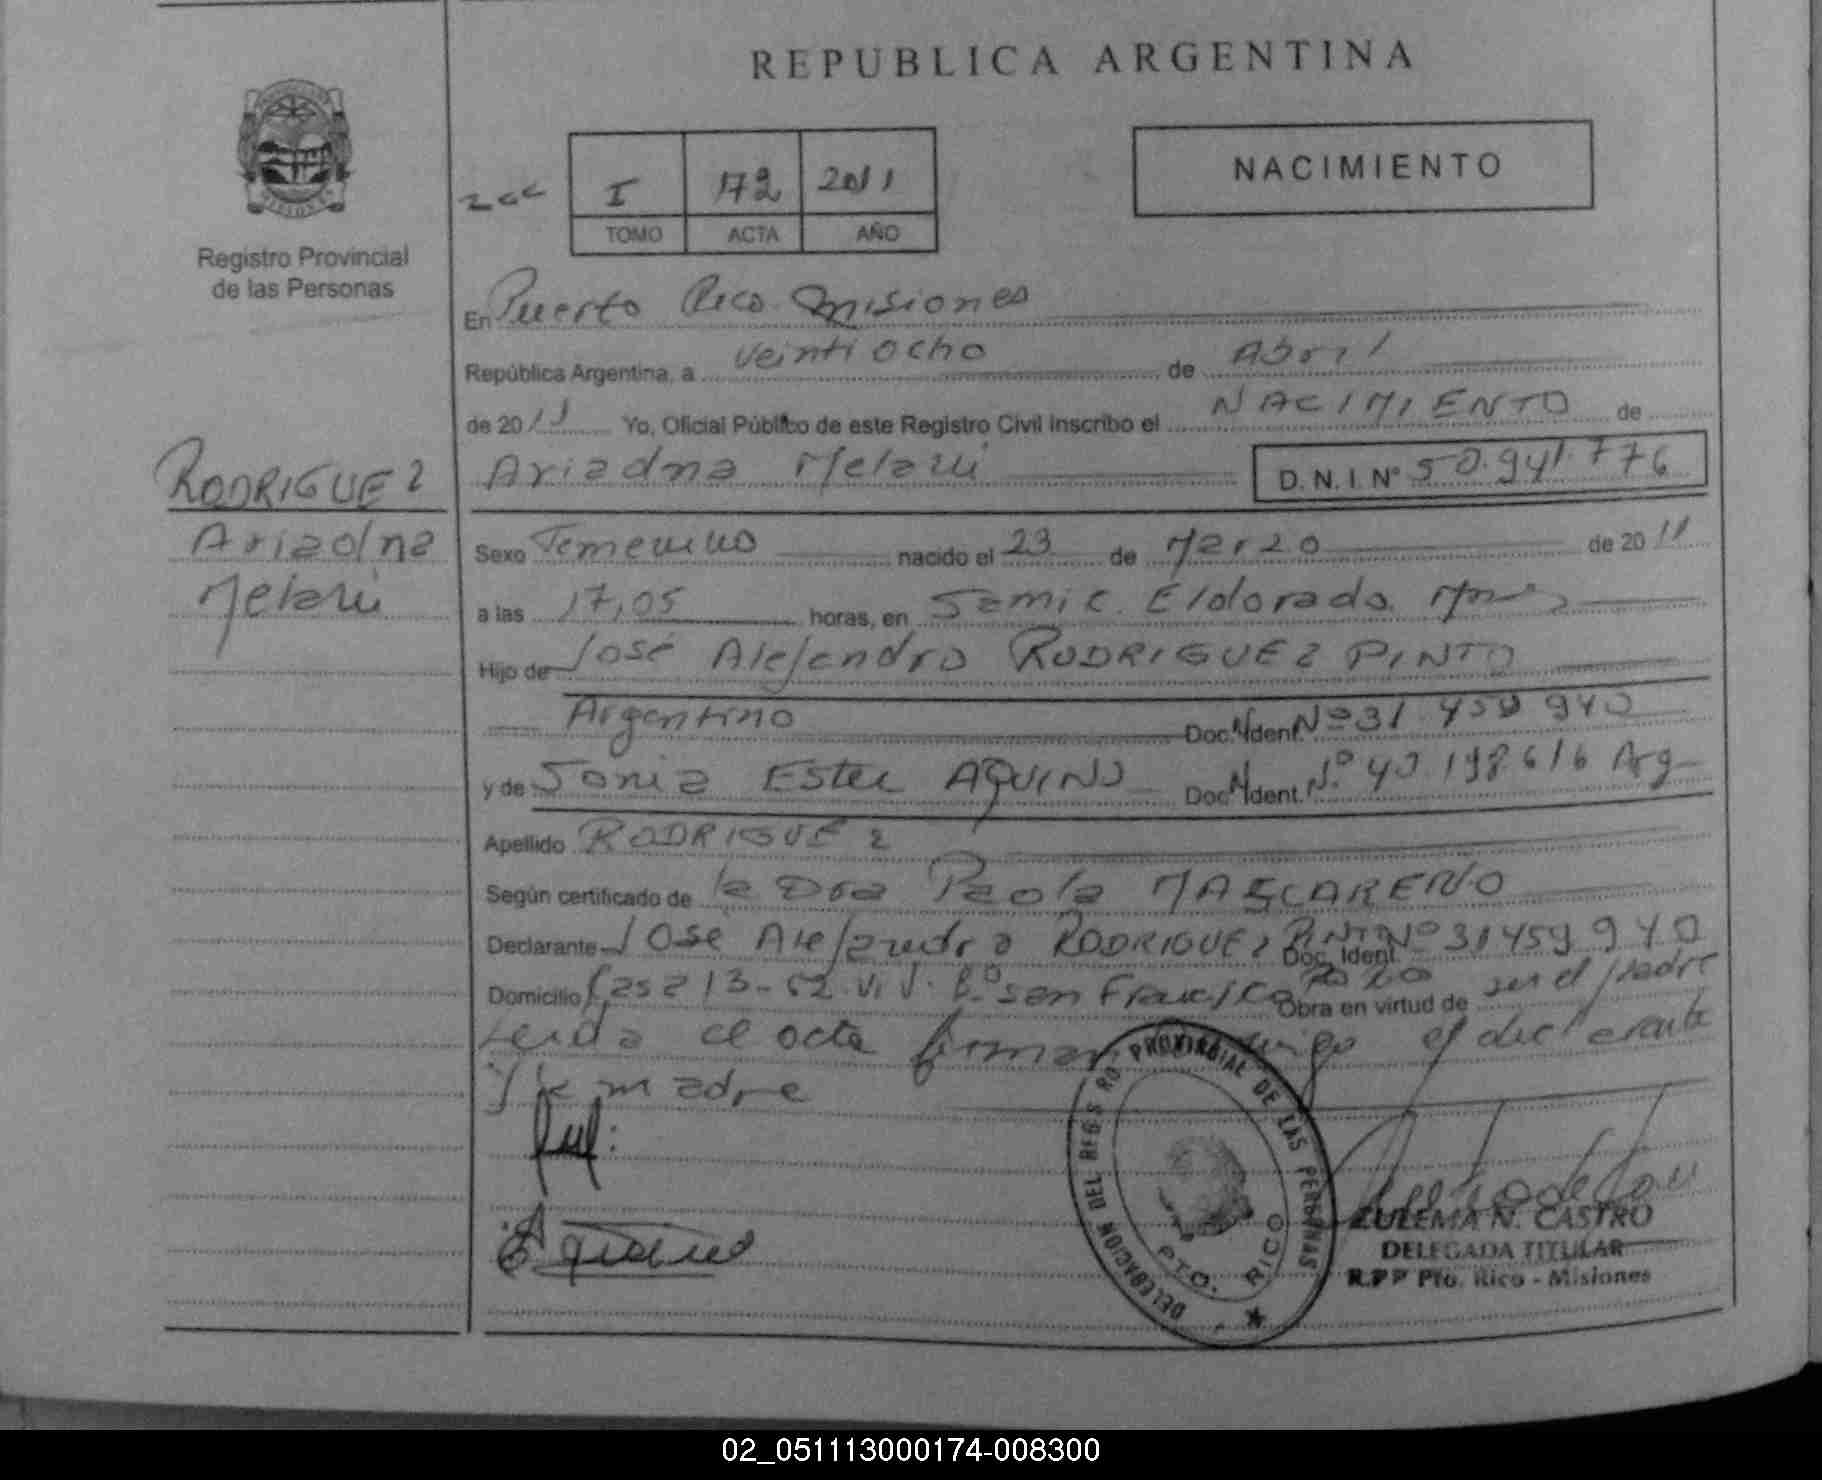 REPUBLICA ARGENTINA
I 172 2011
TOMO ACTA AÑO
NACIMIENTO
Registro Provincial
de las Personas
En Puerto Rico Misiones
República Argentina, a veintiocho de Abril
de 2011 Yo, Oficial Público de este Registro Civil inscribo el NACIMIENTO de
Ariadna D.N.I. Nº 50.941.776
RODRIGUEZ
Ariadna
Sexo Femenino nacido el 23 de Marzo de 2011
a las 17,05 horas, en Samic. Eldorado. Mnes
Hijo de José Alejandro RODRIGUEZ PINTO
Argentino Doc. Ident. Nº 31.459 940
y de Sonia Ester AQUINO Doc. Ident. Nº 40.198616 Arg-
Apellido RODRIGUEZ
Según certificado de la Dra Paola MASCAREÑO
Declarante José Alejandro RODRIGUEZ PINTO Doc. Ident. Nº 31459 940
Domicilio Casa 13-52 Viv. Bº San Francisco Obra en virtud de ser el padre
Leida el acta firman conmigo el declarante
y la madre
DELEGACION DEL REGISTRO PROVINCIAL DE LAS PERSONAS
PTO. RICO
ZULEMA N. CASTRO
DELEGADA TITULAR
R.P.P Pto. Rico - Misiones
02_051113000174-008300